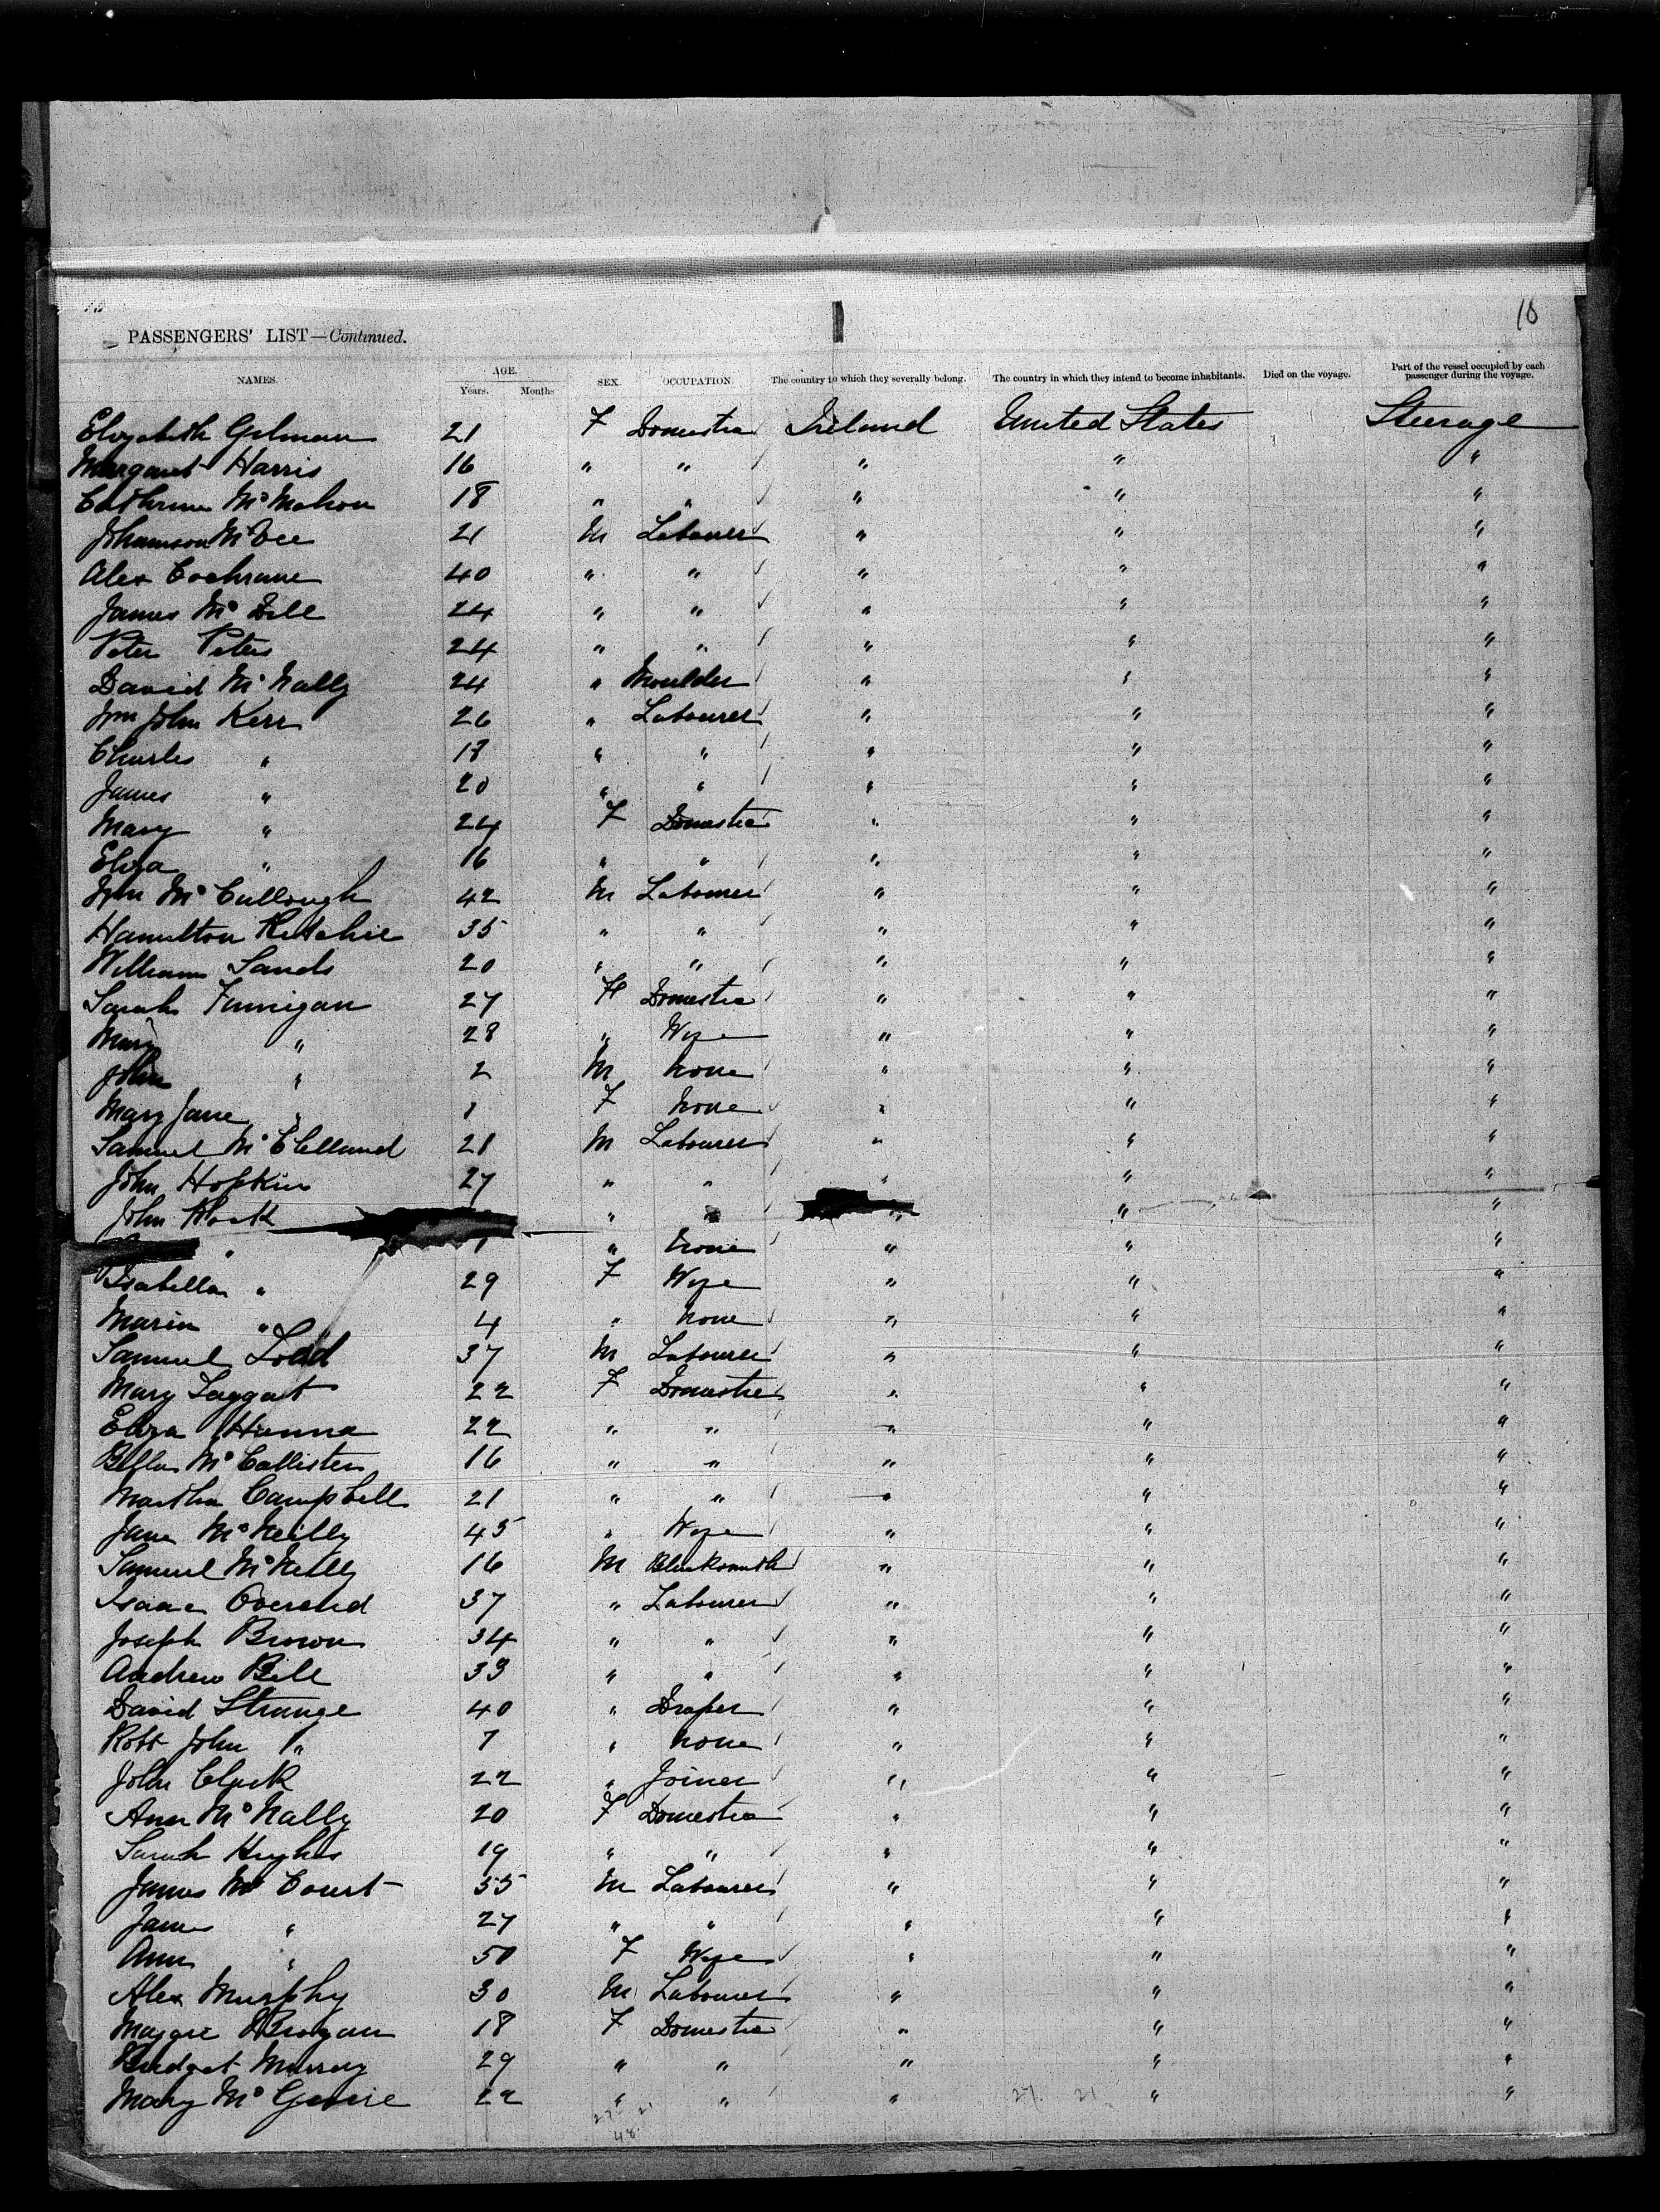 18
PASSENGERS' LIST—Continued.
NAMES. AGE. Years. Months SEX. OCCUPATION. The country to which they severally belong. The country in which they intend to become inhabitants. Died on the voyage. Part of the vessel occupied by each passenger during the voyage.
Elizabeth Gilman 21 F Domestic Ireland United States Steerage
Margaret Harris 16 " " " " "
Cathrine McMahon 18 " " " " "
21 M Labourer " " "
Alex Cochrane 40 " " " " "
James Mc Dill 24 " " " " "
Peter Peters 24 " " " " "
David McNally 24 " Moulder " " "
Wm John Kerr 26 " Labourer " " "
Charles " 18 " " " " "
James " 20 " " " " "
Mary " 24 F Domestic " " "
Eliza " 16 " " " " "
Wm McCullough 42 M Labourer " " "
Hamilton Ritchie 35 " " " " "
William Sands 20 " " " " "
Sarah Finnigan 27 F Domestic " " "
Mary " 28 " Wife " " "
John " 2 M None " " "
Mary Jane " 1 F None " " "
Samuel McClelland 21 M Labourer " " "
John Hopkin 27 " " " " "
John " " " " "
" 1 " None " " "
Isabella " 29 F Wife " " "
" 4 " None " " "
Samuel Todd 37 M Labourer " " "
Mary Taggart 22 F Domestic " " "
Eliza Hanna 22 " " " " "
Bella McCallister 16 " " " " "
Martha Campbell 21 " " " " "
Jane McNeilly 45 " Wife " " "
Samuel McNeilly 16 M Blacksmith " " "
Isaac Overend 37 " Labourer " " "
Joseph Brown 34 " " " " "
Andrew Bell 33 " " " " "
David Strange 40 " Draper " " "
Robt John " 7 " None " " "
John Clark 22 " Joiner " " "
Ann McNally 20 F Domestic " " "
Sarah Hughes 19 " " " " "
James McCourt 55 M Labourer " " "
James " 27 " " " " "
Ann " 50 F Wife " " "
Alex Murphy 30 M Labourer " " "
Maggie Brogan 18 F Domestic " " "
Bridget Murray 29 " " " " "
Mary 22 " " " " "
27 21
27 21
48